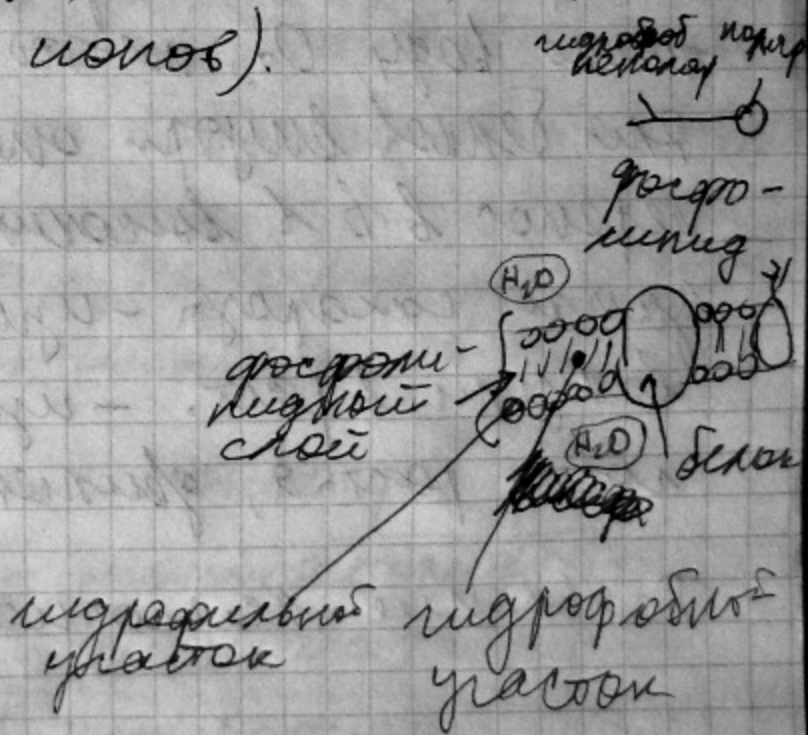 ионов).
гидрофоб поляр
неполяр
фосфо-
липид
H₂O
фосфоли-
пидный
слой
H₂O
белок
гидрафильный гидрофобный
участок участок